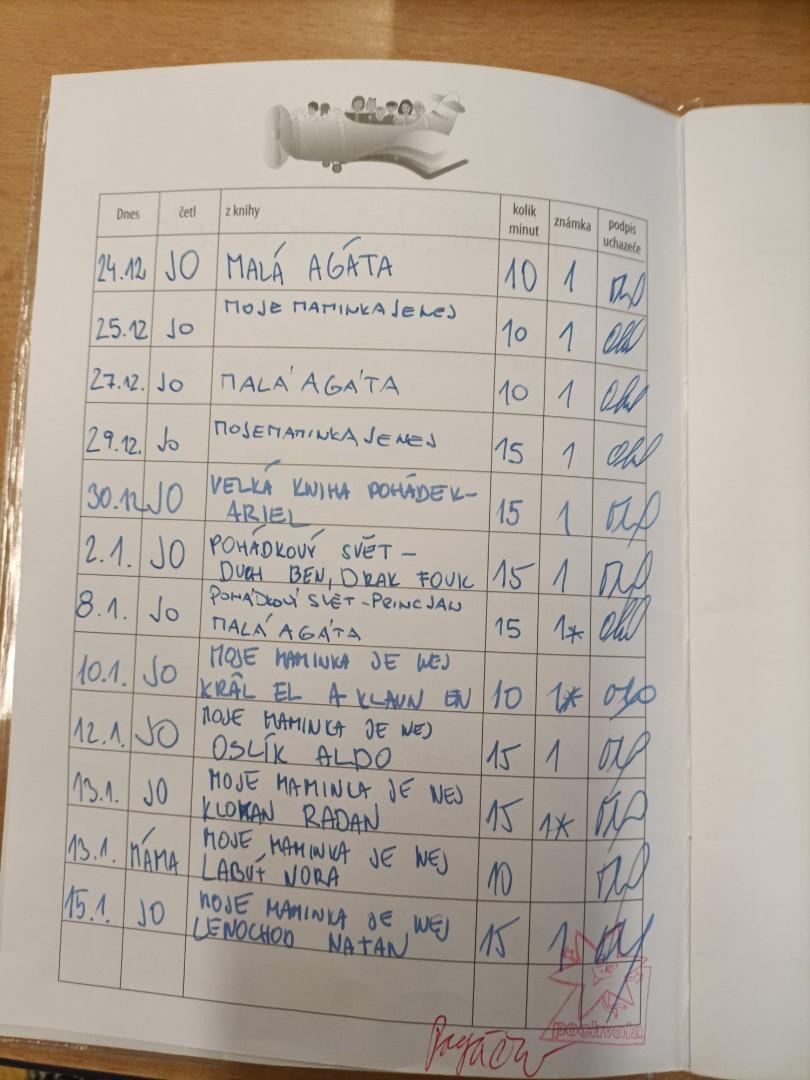 Dnes četl z knihy kolik minut známka podpis uchazeče
24.12 JO MALÁ AGÁTA 10 1
25.12 Jo MOJE MAMINKA JE NEJ 10 1
27.12. Jo MALÁ AGÁTA 10 1
29.12. Jo MOJE MAMINKA JE NEJ 15 1
30.12 JO VELKÁ KNIHA POHÁDEK-
ARIEL 15 1
2.1. JO POHÁDKOVÝ SVĚT –
DUCH BEN, DRAK FOUK 15 1
8.1. Jo POHÁDKOVÝ SVĚT-PRINC JAN
MALÁ AGÁTA 15 1*
10.1. JO MOJE MAMINKA JE NEJ
KRÁL EL A KLAUN EN 10 1*
12.1. JO MOJE MAMINKA JE NEJ
OSLÍK ALDO 15 1
13.1. JO MOJE MAMINKA JE NEJ
KLOKAN RADAN 15 1*
13.1. MÁMA MOJE MAMINKA JE NEJ
LABUŤ NORA 10
15.1. JO MOJE MAMINKA JE NEJ
LENOCHOD NATAN 15 1
pochvala